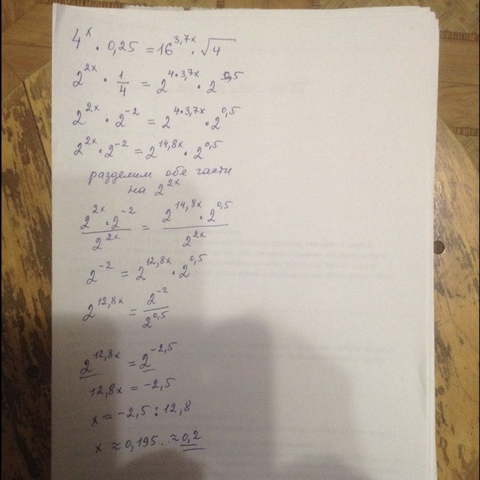 4^x · 0,25 = 16^{3,7x} · √4
2^{2x} · 1/4 = 2^{4·3,7x} · 2^{0,5}
2^{2x} · 2^{-2} = 2^{4·3,7x} · 2^{0,5}
2^{2x} · 2^{-2} = 2^{14,8x} · 2^{0,5}
разделим обе части
на 2^{2x}
(2^{2x} · 2^{-2})/2^{2x} = (2^{14,8x} · 2^{0,5})/2^{2x}
2^{-2} = 2^{12,8x} · 2^{0,5}
2^{12,8x} = 2^{-2}/2^{0,5}
2^{12,8x} = 2^{-2,5}
12,8x = -2,5
x = -2,5 : 12,8
x ≈ 0,195.. ≈ 0,2